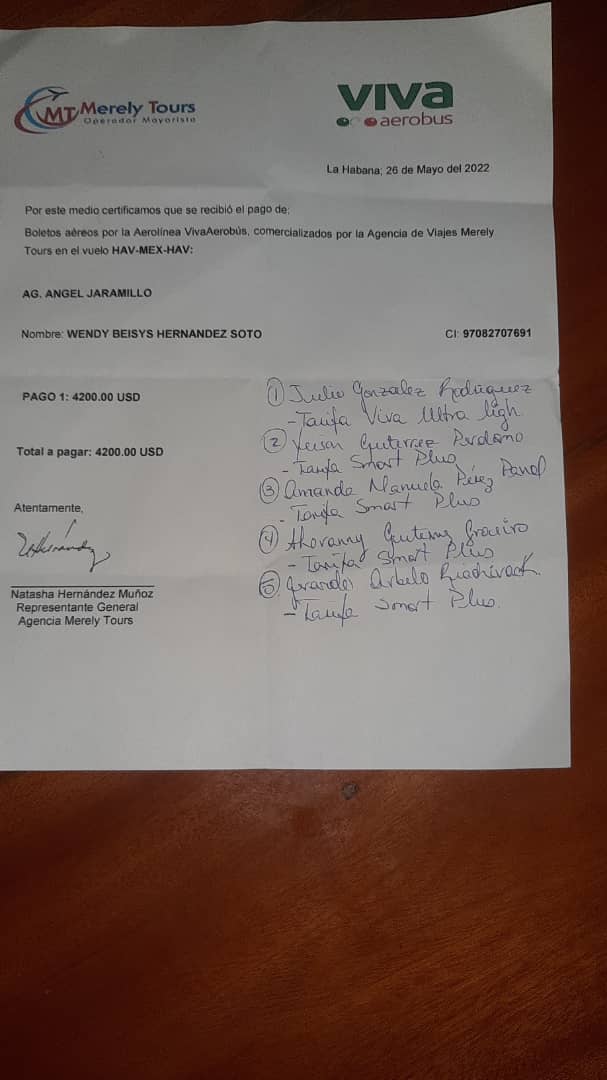 MT Merely Tours
Operador Mayorista
VIVA
aerobus
La Habana; 26 de Mayo del 2022
Por este medio certificamos que se recibió el pago de:
Boletos aéreos por la Aerolínea VivaAerobús, comercializados por la Agencia de Viajes Merely
Tours en el vuelo HAV-MEX-HAV:
AG. ANGEL JARAMILLO
Nombre: WENDY BEISYS HERNANDEZ SOTO CI: 97082707691
PAGO 1: 4200.00 USD
Total a pagar: 4200.00 USD
Atentamente,
Natasha Hernández Muñoz
Representante General
Agencia Merely Tours
① Julio Gonzalez Rodriguez
- Tarifa Viva Ultra ligh
② Gutierrez Perdomo
- Tarifa Smart Plus
③ Amanda Manuela Pérez
- Tarifa Smart Plus
④
- Tarifa Smart Plus
⑤ Arbelo
- Tarifa Smart Plus.